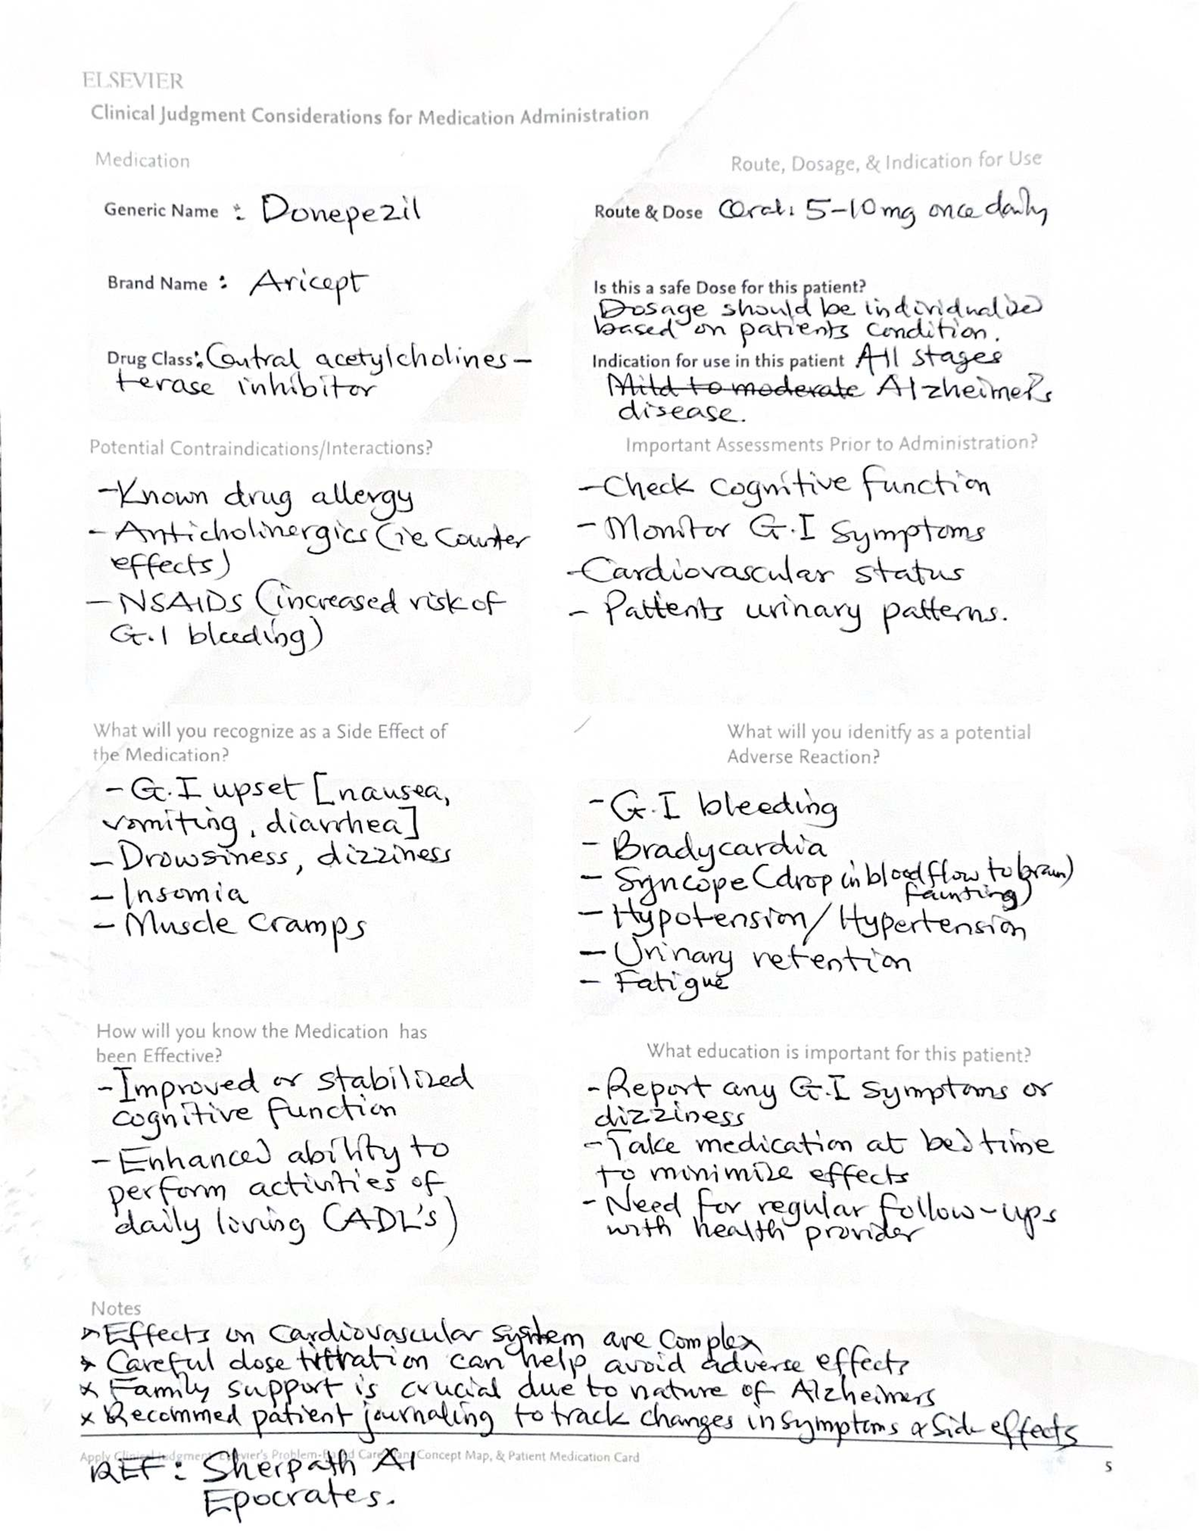 ELSEVIER
Clinical Judgment Considerations for Medication Administration
Medication
Generic Name : Donepezil
Brand Name : Aricept
Drug Class: Central acetylcholines-
terase inhibitor
Route, Dosage, & Indication for Use
Route & Dose Oral: 5-10mg once daily
Is this a safe Dose for this patient?
Dosage should be individualized
based on patients condition.
Indication for use in this patient All stages
Mild to moderate Alzheimer's
disease.
Potential Contraindications/Interactions?
-Known drug allergy
- Anticholinergics (ie Counter
effects)
- NSAIDS (increased risk of
G.I bleeding)
Important Assessments Prior to Administration?
-Check cognitive function
- Monitor G.I symptoms
-Cardiovascular status
- Patients urinary patterns.
What will you recognize as a Side Effect of
the Medication?
- G.I upset [nausea,
vomiting, diarrhea]
- Drowsiness, dizziness
- Insomia
- Muscle cramps
What will you idenitfy as a potential
Adverse Reaction?
- G.I bleeding
- Bradycardia
- Syncope (drop in blood flow to brain)
fainting)
- Hypotension/Hypertension
- Urinary retention
- Fatigue
How will you know the Medication has
been Effective?
-Improved or stabilized
cognitive function
- Enhanced ability to
perform activities of
daily living (ADL's)
What education is important for this patient?
-Report any G.I symptoms or
dizziness
-Take medication at bedtime
to minimize effects
- Need for regular follow-ups
with health provider
Notes
* Effects on cardiovascular system are complex
* Careful dose titration can help avoid adverse effects
x Family support is crucial due to nature of Alzheimers
x Recommed patient journaling to track changes in symptoms & side effects
Apply Clinical Judgment: Elsevier's Problem-Based Care Plan, Concept Map, & Patient Medication Card
5
REF: Sherpath AI
Epocrates.